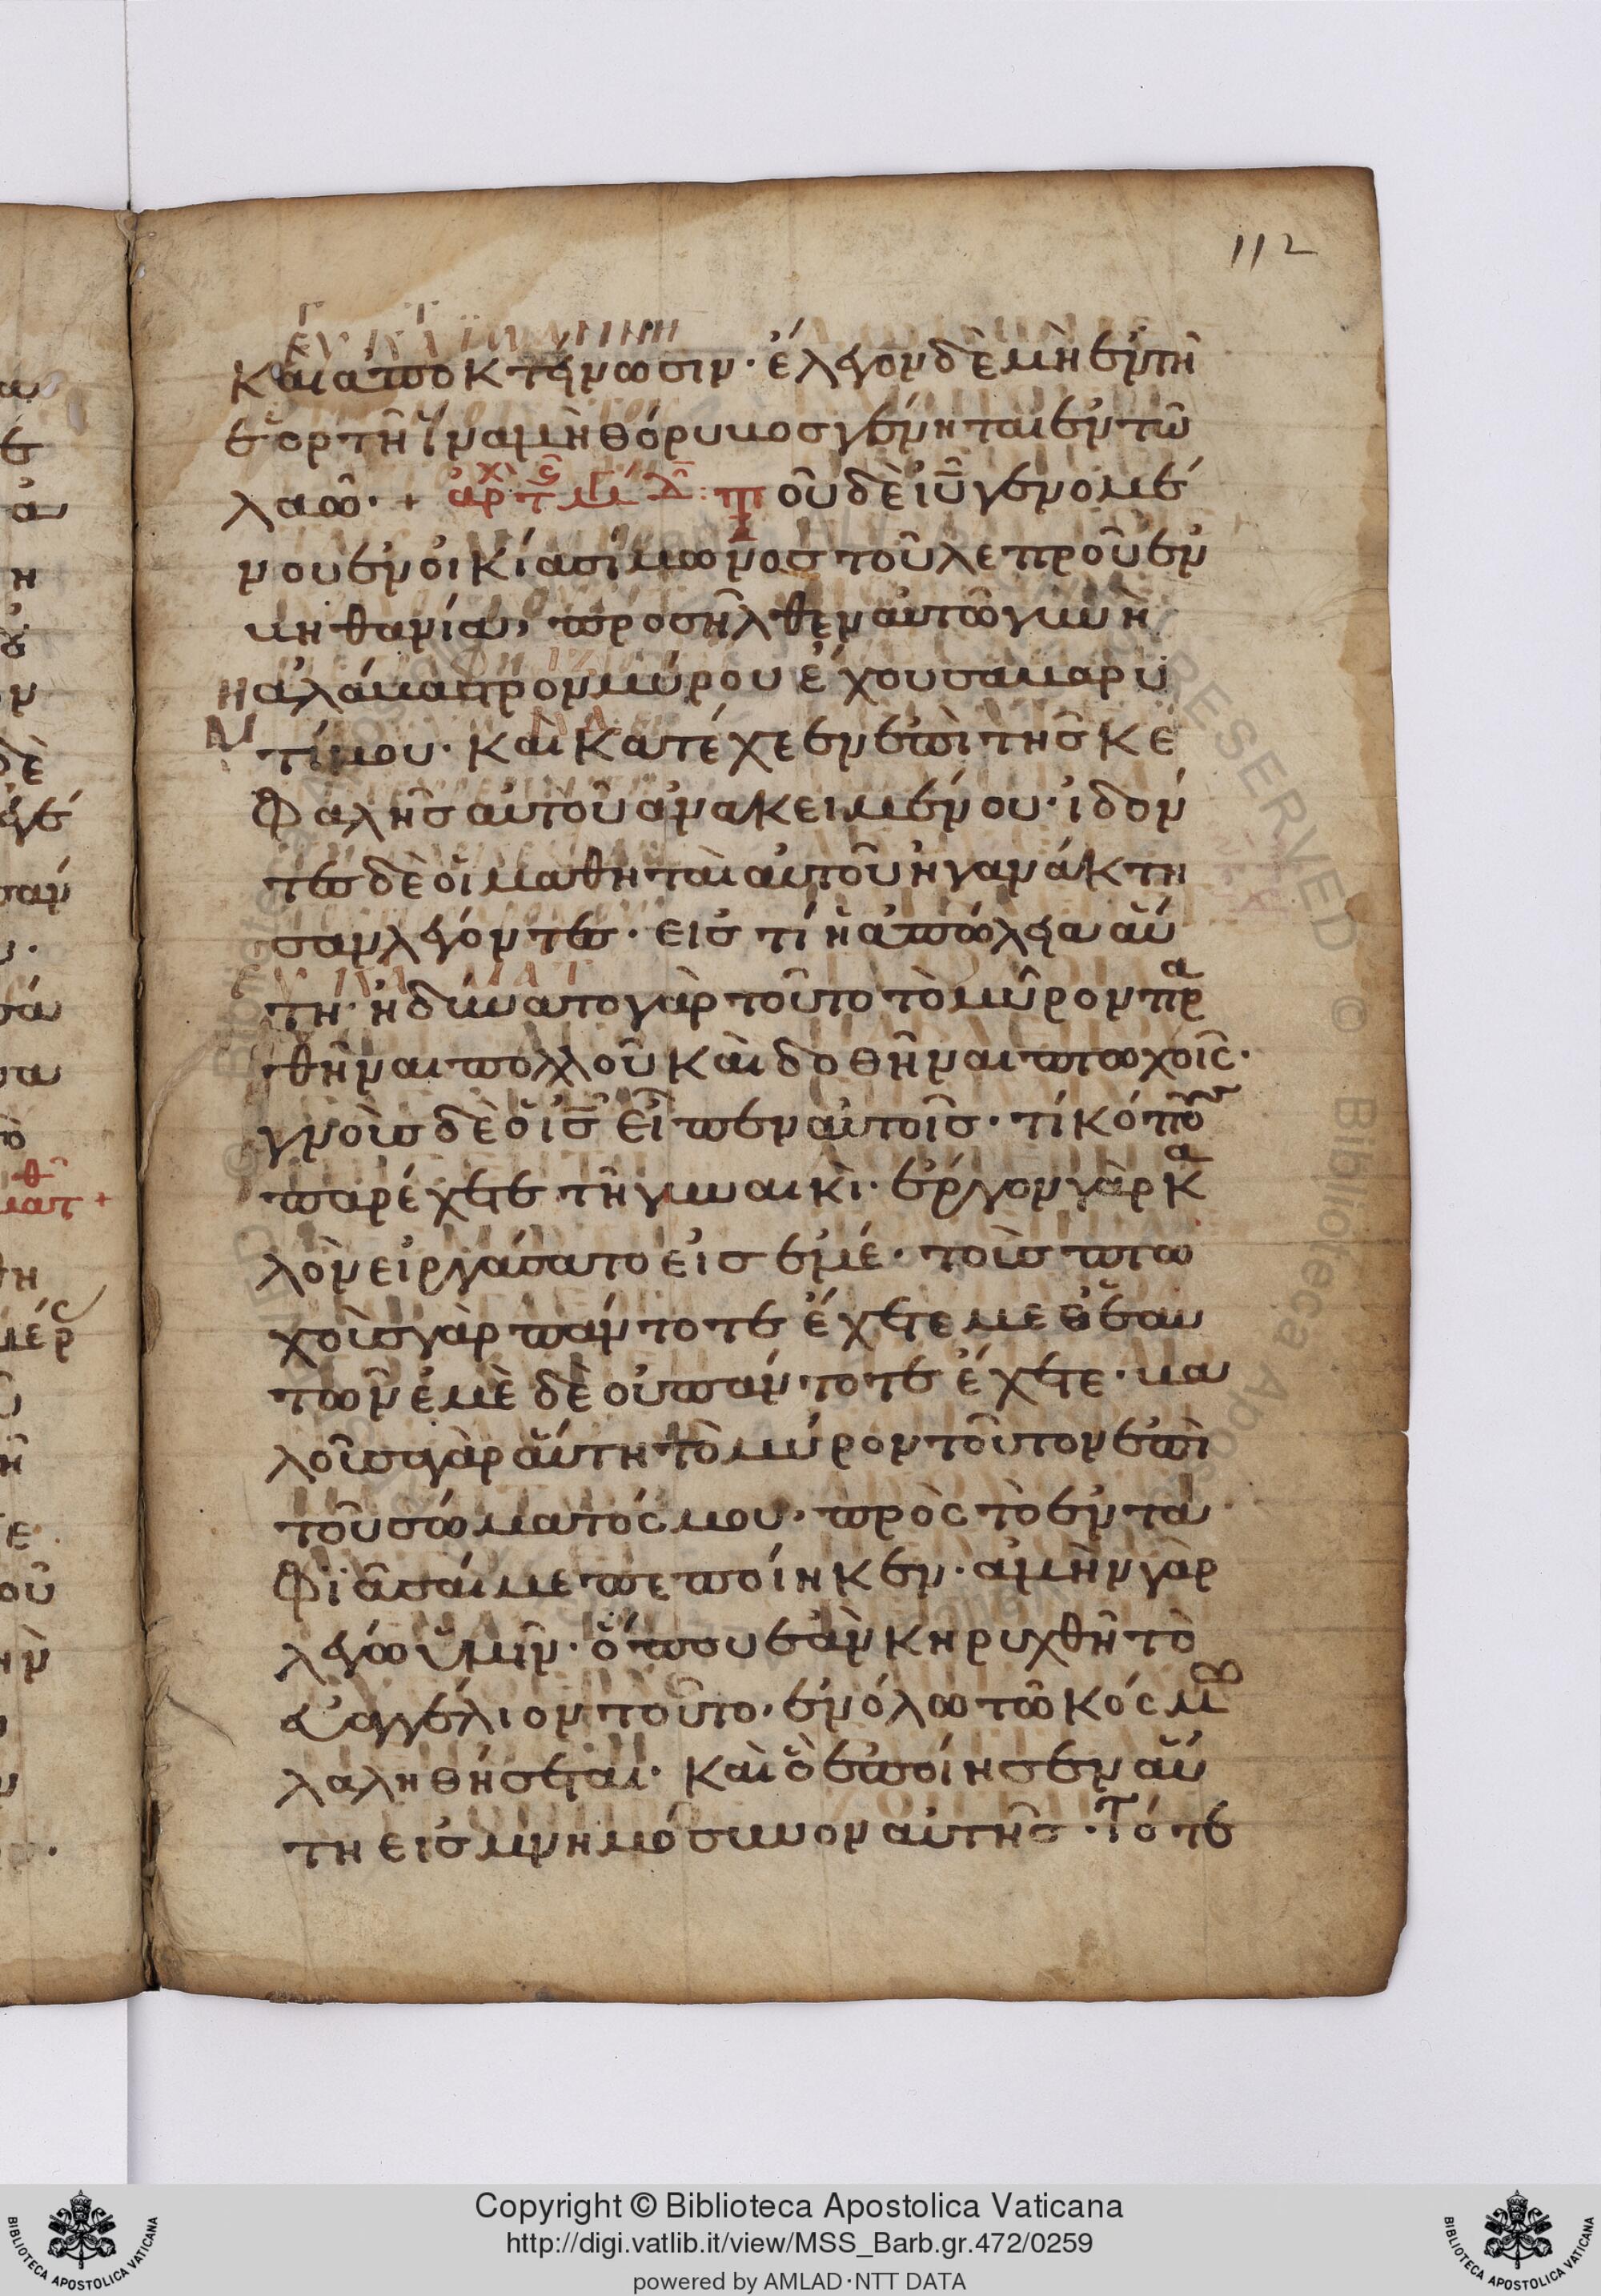 112
και αποκτείνωσιν· ἔλεγον δὲ μὴ ἐν τῆ
ἑορτῆ ἵνα μὴ θόρυβος γένηται ἐν τῶ
λαῶ· + ἀρχ τ Τοῦ δὲ ἰῦ γενομέ
νου ἐν οἰκία σίμωνος τοῦ λεπροῦ ἐν
βηθανία, προσῆλθεν αὐτῶ γυνὴ
ἀλάβαστρον μύρου ἔχουσα βαρυ
τίμου· καὶ κατέχεεν ἐπὶ τῆς κε
φαλῆς αὐτοῦ ἀνακειμένου· ἰδόν
τες δὲ οἱ μαθηταὶ αὐτοῦ ἠγανάκτη
σαν λέγοντες· εἰς τί ἡ ἀπώλεια αὕ
τη· ἠδύνατο γὰρ τοῦτο τὸ μῦρον πρα
θῆναι πολλοῦ καὶ δοθῆναι πτωχοῖς·
γνοὺς δὲ ὁ ἰς εἶπεν αὐτοῖς· τί κόπους
παρέχετε τῆ γυναικὶ· ἔργον γὰρ κα
λὸν εἰργάσατο εἰς ἐμέ· τοὺς πτω
χοὺς γὰρ πάντοτε ἔχετε μεθ ἑαυ
τῶν ἐμὲ δὲ οὐ πάντοτε ἔχετε· βα
λοῦσα γὰρ αὕτη τὸ μύρον τοῦτον ἐπὶ
τοῦ σώματός μου, πρὸς τὸ ἐντα
φιᾶσαί με πεποίηκεν· ἀμὴν γὰρ
λέγω ὑμῖν· ὅπου ἐὰν κηρυχθῆ τὸ
εὐαγγέλιον τοῦτο, ἐν ὅλω τῶ κόσμω
λαληθήσεται· καὶ ὃ ἐποίησεν αὕ
τη εἰς μνημόσυνον αὐτῆς· Τότε
Copyright © Biblioteca Apostolica Vaticana
http://digi.vatlib.it/view/MSS_Barb.gr.472/0259
powered by AMLAD·NTT DATA
BIBLIOTECA APOSTOLICA VATICANA
BIBLIOTECA APOSTOLICA VATICANA